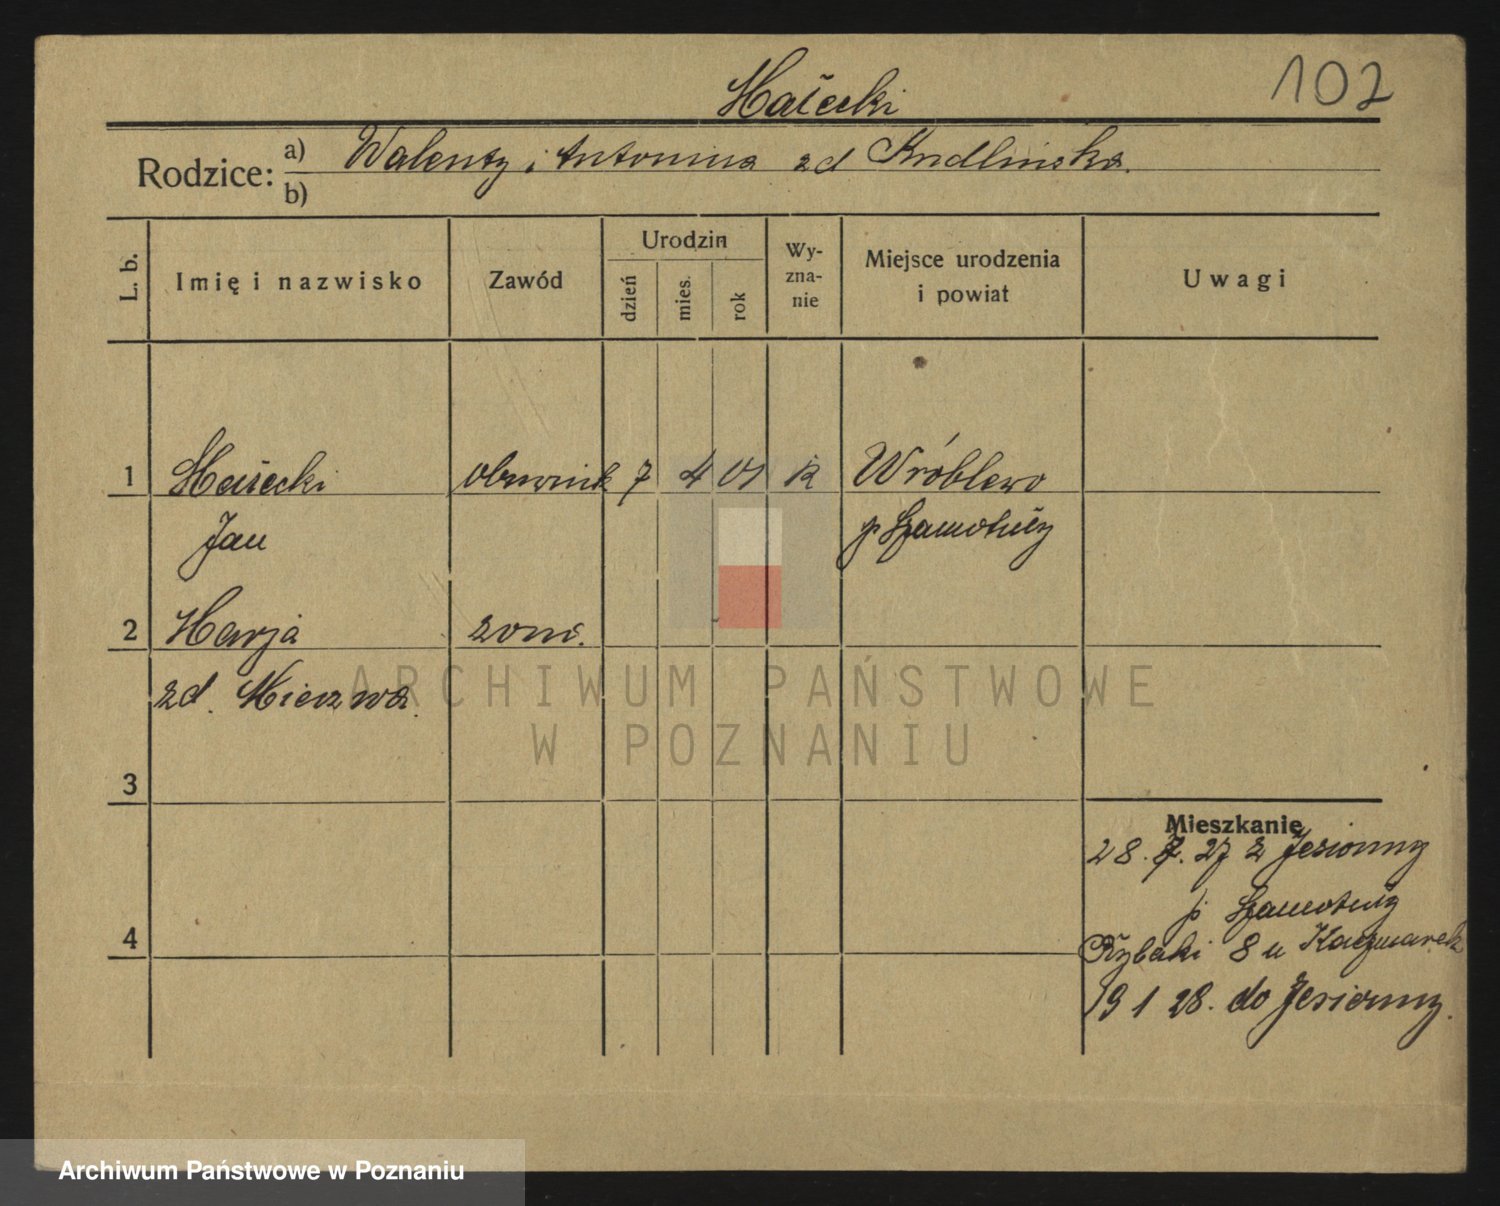 Małecki
102
Rodzice: a) Walenty i Antonina zd Kudlińska.
b)
L. b.
Imię i nazwisko
Zawód
Urodzin
dzień
mies.
rok
Wy-
zna-
nie
Miejsce urodzenia
i powiat
Uwagi
1 Małecki obuwnik 7 4 01 k Wróblewo
Jan p Szamotuły
2 Marja żona.
zd. Mierzwa.
3
4
Mieszkanie
28. 7. 27 z Jesionny
p Szamotuły
Rybaki 8 u Kaczmarek
19 1 28. do Jesionny.
ARCHIWUM PAŃSTWOWE
W POZNANIU
Archiwum Państwowe w Poznaniu